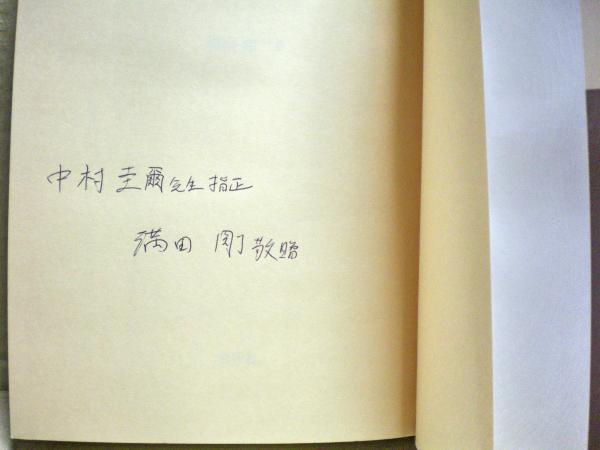 中村圭爾先生指正
満田 剛敬贈